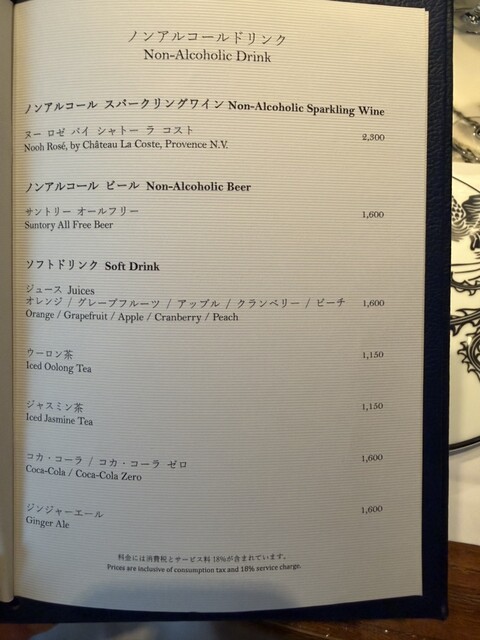 ノンアルコールドリンク
Non-Alcoholic Drink
ノンアルコール スパークリングワイン Non-Alcoholic Sparkling Wine
ヌー ロゼ バイ シャトー ラ コスト 2,300
Nooh Rosé, by Château La Coste, Provence N.V.
ノンアルコール ビール Non-Alcoholic Beer
サントリー オールフリー 1,600
Suntory All Free Beer
ソフトドリンク Soft Drink
ジュース Juices
オレンジ / グレープフルーツ / アップル / クランベリー / ピーチ 1,600
Orange / Grapefruit / Apple / Cranberry / Peach
ウーロン茶 1,150
Iced Oolong Tea
ジャスミン茶 1,150
Iced Jasmine Tea
コカ・コーラ / コカ・コーラ ゼロ 1,600
Coca-Cola / Coca-Cola Zero
ジンジャーエール 1,600
Ginger Ale
料金には消費税とサービス料 18%が含まれています。
Prices are inclusive of consumption tax and 18% service charge.